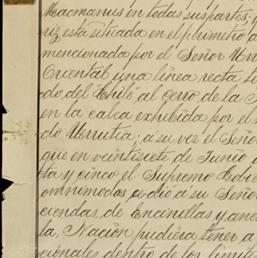 Macmanus en todas sus partes; y
riz está situada en el plumetro a
mencionada por el Señor Urr
Oriental una linea recta
do del "Chilo" al cerro de la
en la calca exhibida por el
do Urrutia, á su vez el Seño
que en veintisiete de Junio
ta y cinco el Supremo Gobi
omnimodas cedió á su Seño
ciendas, de Encinillas y ane
ta, Nación pudiera tener a
cionales dentro de los limite